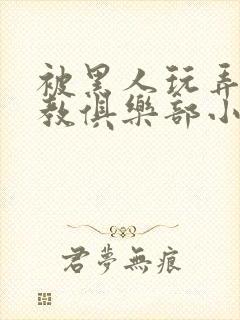 被黑人玩弄
教俱樂部小
君夢無痕